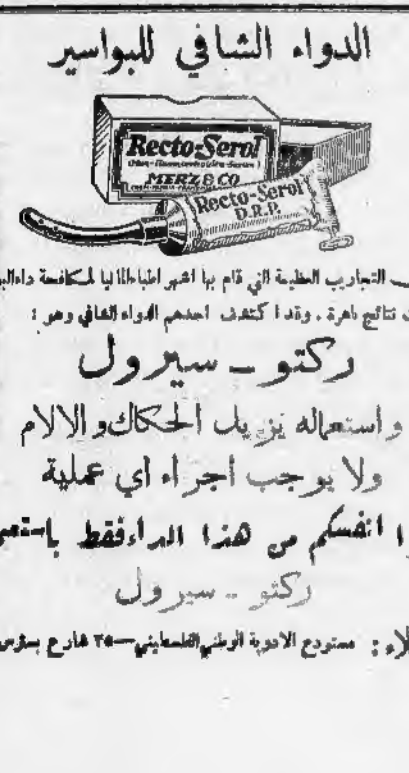 الدواء الشافي للبواسير
Recto-Serol
MERZ & CO
Recto-Serol
D.R.P.
التجاريب العظيمة التي قام بها اشهر اطباء المانيا لمكافحة
نتائج باهرة . وقد اكتشف احدهم الدواء الشافي وهو :
ركتو - سيرول
واستعماله يزيل الحكاك والالام
ولا يوجب اجراء اي عملية
انفسكم من هذا الداء فقط
ركتو - سيرول
مستودع الادوية الوطني الفلسطيني — ٢٥ شارع